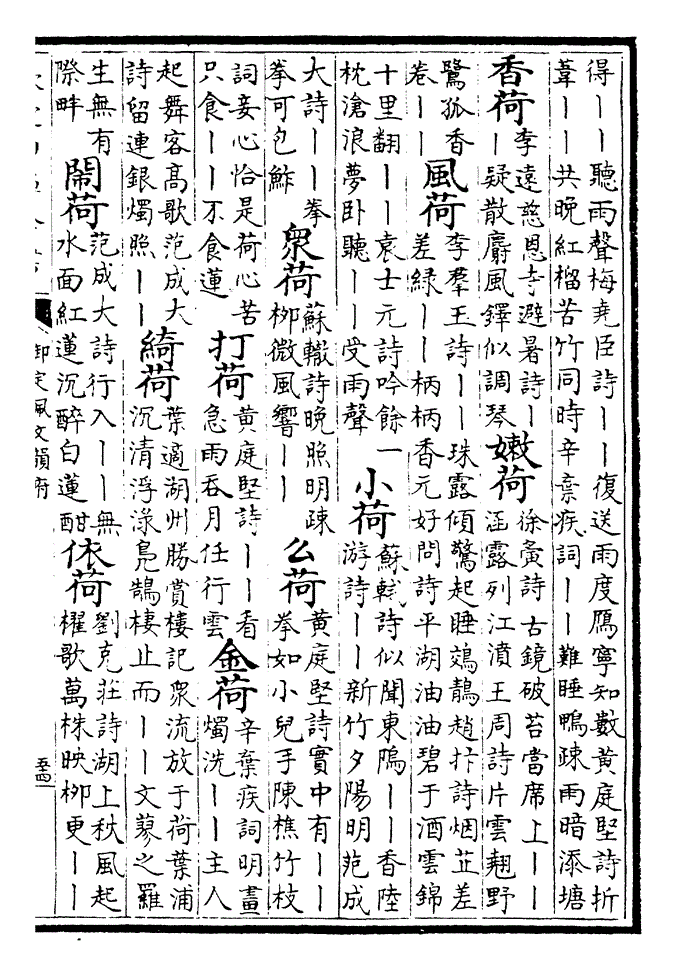 得丨丨聽雨聲梅堯臣詩丨丨復送雨度鴈寧知數黃庭堅詩折
葦丨丨共晚紅榴苦竹同時辛棄疾詞丨丨難睡鴨疎雨暗添塘
香荷
李遠慈恩寺避暑詩丨
丨疑散麝風鐸似調琴
嫩荷
徐夤詩古鏡破苔當席上丨丨
涵露列江濆王周詩片雲翹野
鷺孤香
卷丨丨
風荷
李羣玉詩丨丨珠露傾驚起睡鵁鶄趙抃詩烟芷差
差綠丨丨柄柄香元好問詩平湖油油碧于酒雲錦
十里翻丨丨袁士元詩吟餘一
枕滄浪夢卧聽丨丨受雨聲
小荷
蘇軾詩似聞東隖丨丨香陸
游詩丨丨新竹夕陽明范成
大詩丨丨拳
拳可包鮓
衆荷
蘇轍詩晚照明疎
栁微風響丨丨
么荷
黃庭堅詩實中有丨丨
拳如小兒手陳樵竹枝
詞妾心恰是荷心苦
只食丨丨不食蓮
打荷
黃庭堅詩丨丨看
急雨吞月任行雲
金荷
辛棄疾詞明畫
燭洗丨丨主人
起舞客高歌范成大
詩留連銀燭照丨丨
綺荷
葉適湖州勝賞樓記衆流放于荷葉浦
沉清浮淥鳧鵠棲止而丨丨文蓼之羅
生無有
際畔
鬧荷
范成大詩行入丨丨無
水面紅蓮沉醉白蓮酣
依荷
劉克莊詩湖上秋風起
櫂歌萬株映栁更丨丨
御定佩文韻府